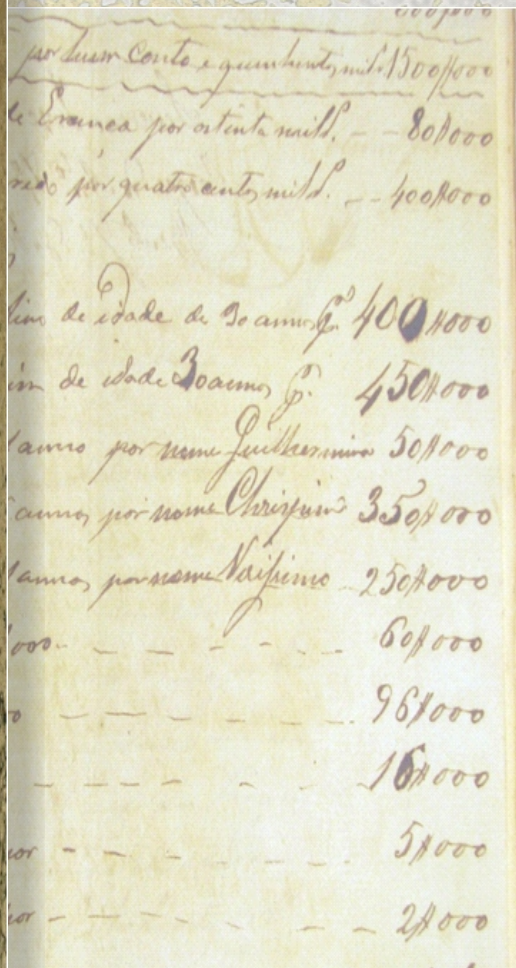 por hum conto e quinhentos mil rs 1500$000
de Franca por oitenta mil rs. - - 80$000
redo por quatro centos mil rs. - - 400$000
de idade de 30 annos pr. 400$000
de idade 30 annos pr. 450$000
anno por nome Guilhermina 50$000
annos por nome Chrispim 350$000
annos por nome 250$000
60$000
96$000
16$000
5$000
2$000